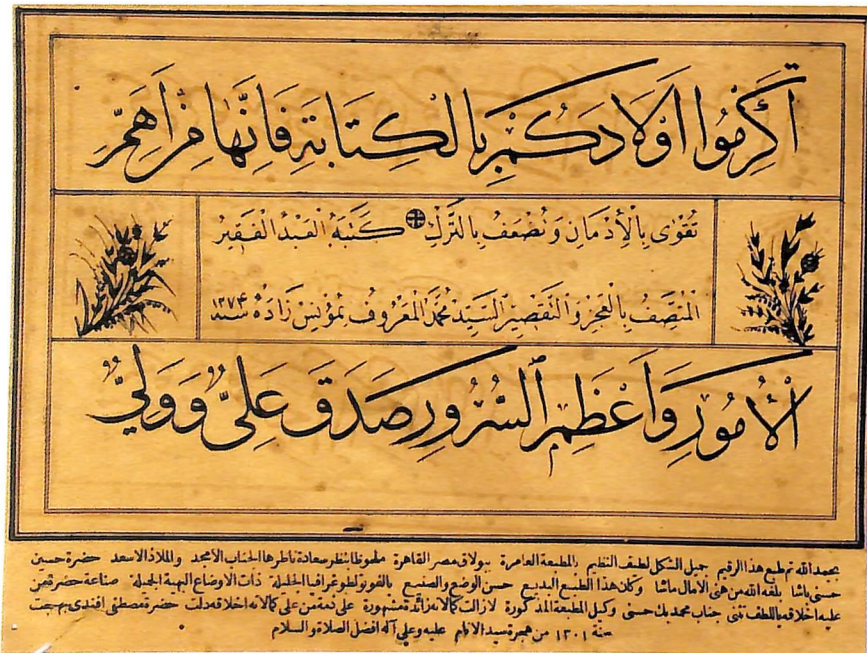 أَكْرِمُوا أَوْلَادَكُمْ بِالْكِتَابَةِ فَإِنَّهَا مِنْ أَهَمِّ
تَقْوٰى بِالْأِدْمَانِ وَتَضْعَفُ بِالتَّرْكِ كَتَبَهُ الْعَبْدُ الْفَقِيرُ
الْمُتَّصِفُ بِالْعَجْزِ وَالتَّقْصِيرِ السَّيِّدُ مُحَمَّدُ الْمَعْرُوفُ بِمُؤْنِسْ زَادَهْ سَنَة ١٢٧٤
الْأُمُورِ وَأَعْظَمِ السُّرُورِ صَدَقَ عَلِيٌّ وَوَلِيٌّ
بحمد الله تم طبع هذا الرقيم جميل الشكل لطيف التنظيم بالمطبعة العامرة ببولاق مصر القاهرة ملحوظا بنظر سعادة ناظرها الجناب الأمجد والملاذ الاسعد حضرة حسين
حسنى باشا بلغه الله من هنى الآمال ماشا وكان هذا الطبع البديع حسن الوضع والصنيع بالفوتولطوغرافيا الجليلة ذات الاوضاع البهية الجميلة صناعة حضرة من
عليه اخلاقه باللطف تثنى جناب محمد بك حسنى وكيل المطبعة المذكورة لازالت كمالاته زائدة مشهورة على ذمة من على كمالاته اخلاقه دلت حضرة مصطفى افندى بهجت
سنة ١٣٠١ من هجرة سيد الانام عليه وعلى آله افضل الصلاة والسلام